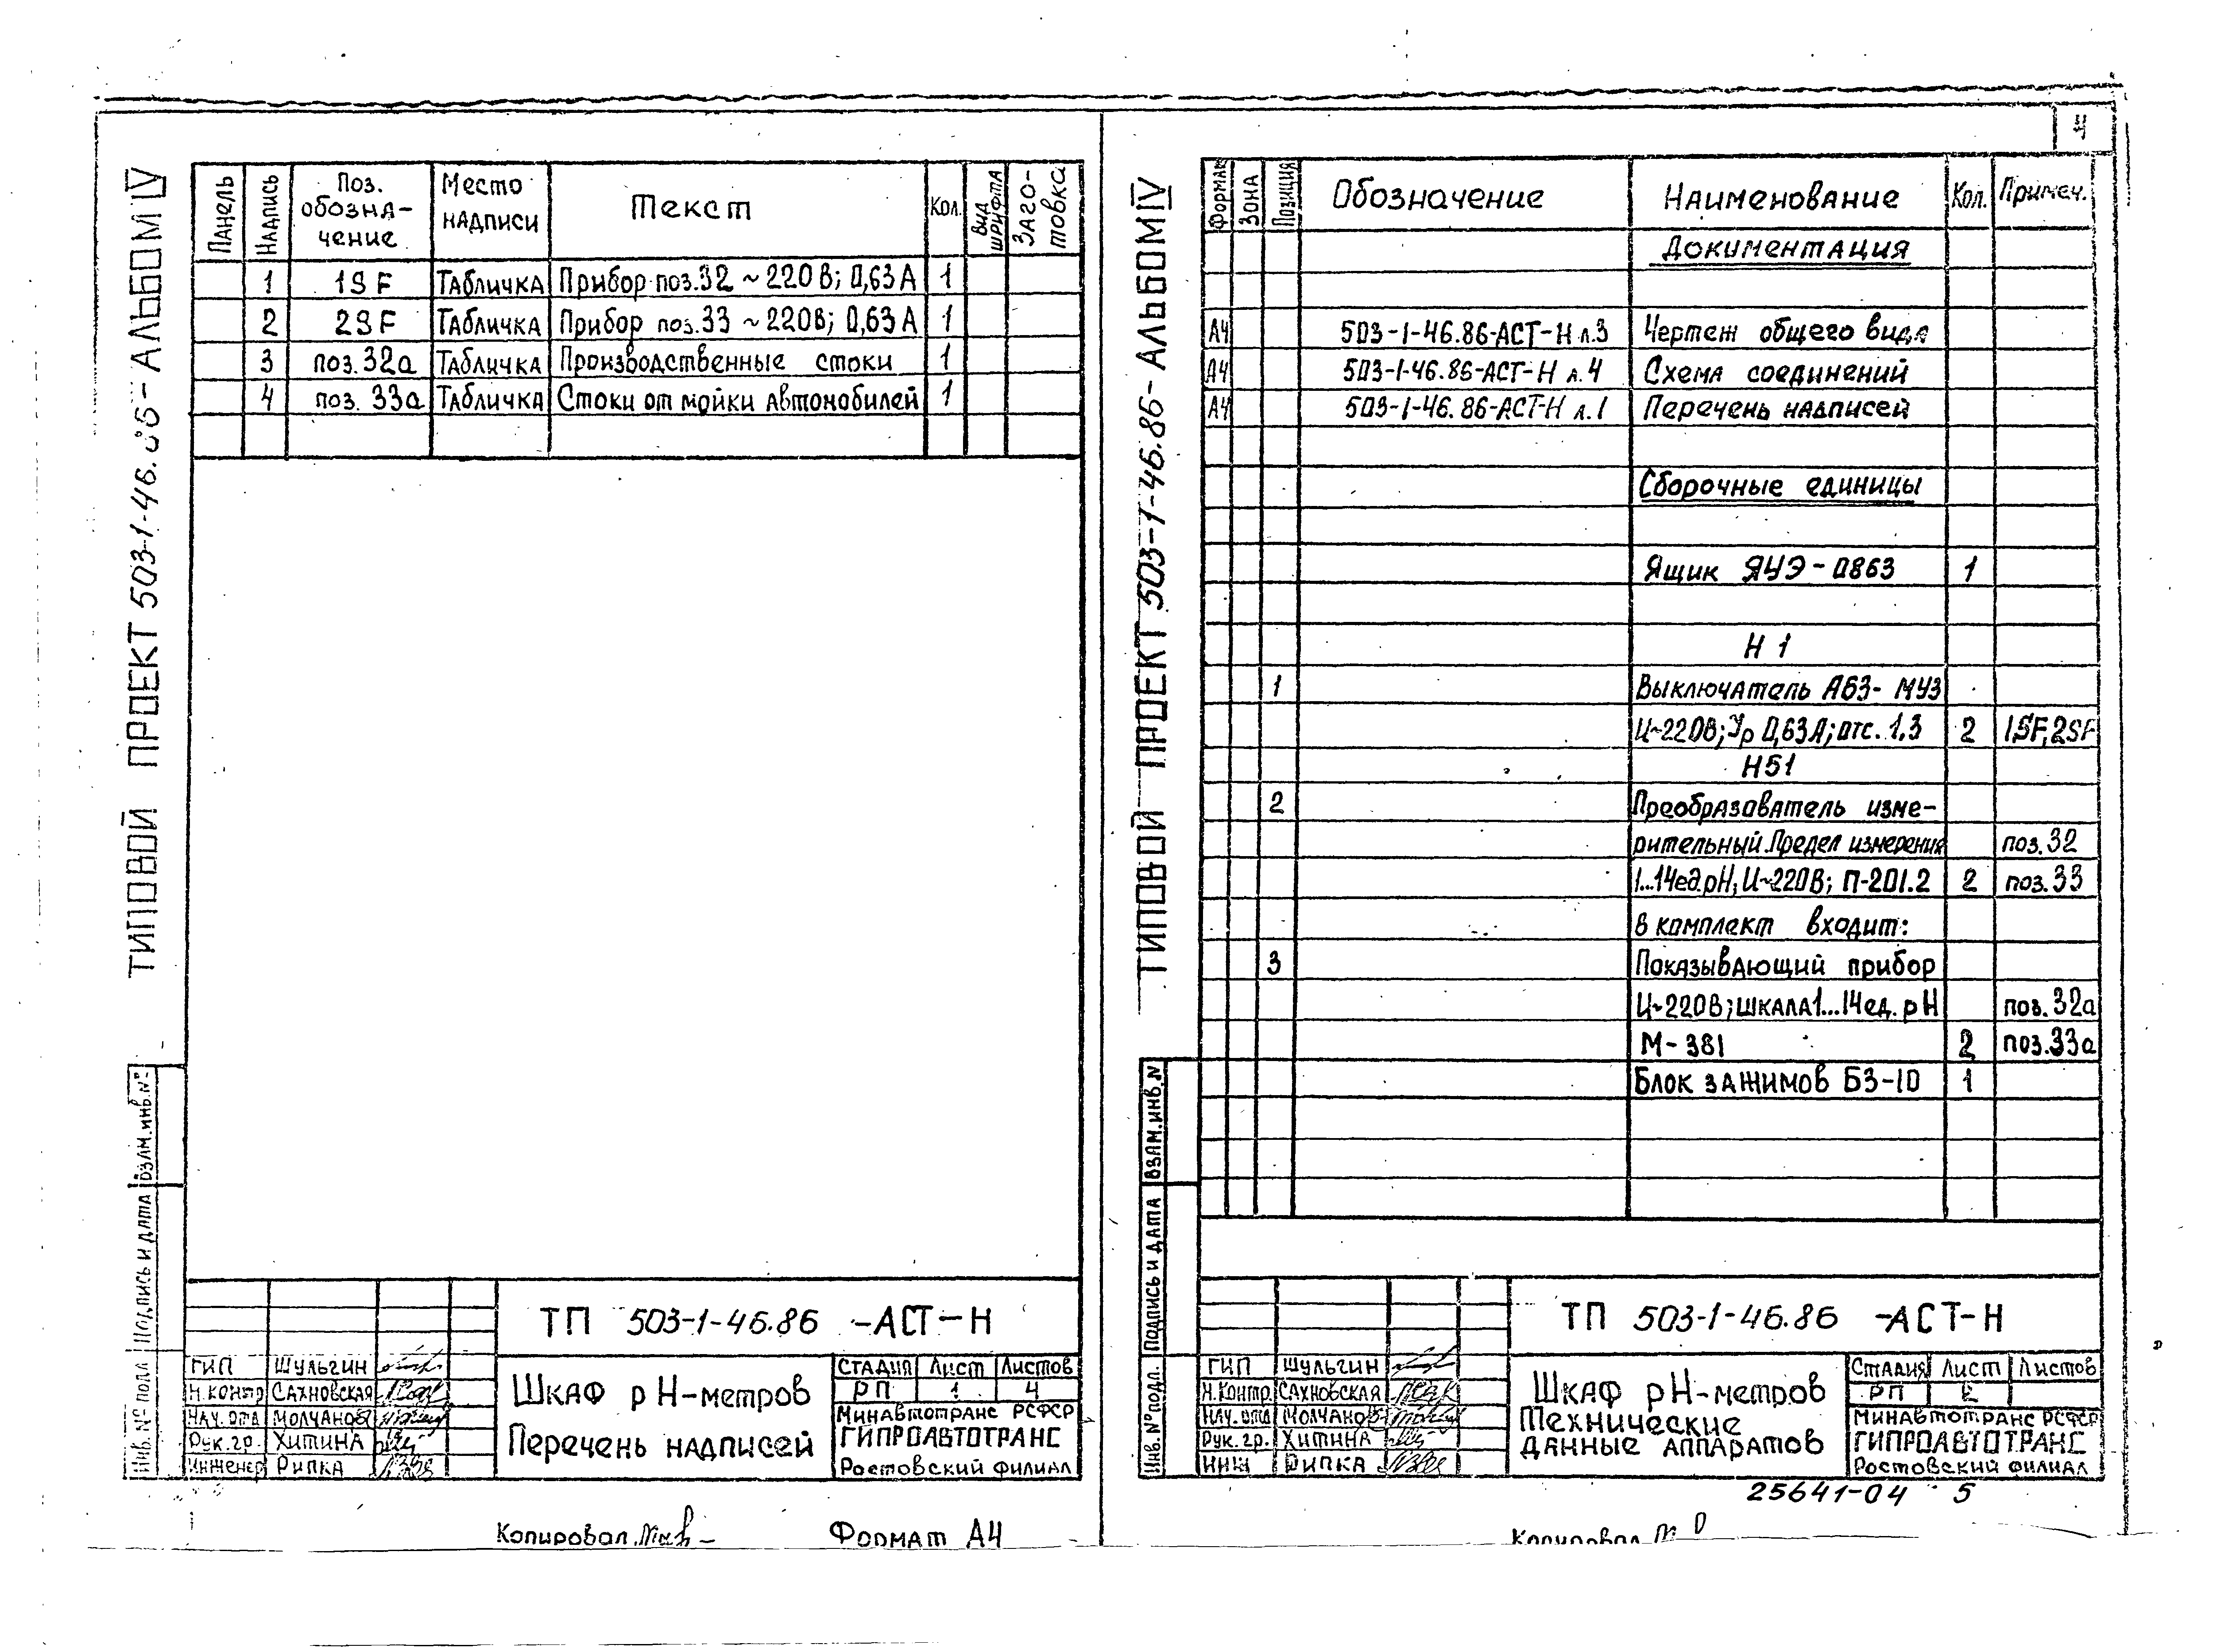 4
ТИПОВОЙ ПРОЕКТ 503-1-46.86 - АЛЬБОМ IV
Панель Надпись Поз. обозна-чение Место надписи Текст Кол. Вид шрифта Заго-товка
1 1SF Табличка Прибор поз.32 ~ 220В; 0,63А 1
2 2SF Табличка Прибор поз.33 ~ 220В; 0,63А 1
3 поз.32а Табличка Производственные стоки 1
4 поз. 33а Табличка Стоки от мойки автомобилей 1
Взам.инв.№
Подпись и дата
Инв.№ подл
ТП 503-1-46.86 -АСТ-Н
ГИП Шульгин
Н.контр Сахновская
Нач.отд Молчанов
Рук.гр. Хитина
Инженер Рипка
Шкаф рН-метров
Перечень надписей
Стадия Лист Листов
РП 1 4
Минавтотранс РСФСР
ГИПРОАВТОТРАНС
Ростовский филиал
Копировал
Формат А4
ТИПОВОЙ ПРОЕКТ 503-1-46.86 - АЛЬБОМ IV
Формат Зона Позиция Обозначение Наименование Кол. Примеч.
Документация
А4 503-1-46.86-АСТ-Н л.3 Чертеж общего вида
А4 503-1-46.86-АСТ-Н л.4 Схема соединений
А4 503-1-46.86-АСТ-Н л.1 Перечень надписей
Сборочные единицы
Ящик ЯУЭ-0863 1
Н 1
1 Выключатель А63-МУ3
U~220В; Iр 0,63А; отс. 1,3 2 1SF,2SF
Н51
2 Преобразователь изме-
рительный.Предел измерения поз.32
1...14ед.рН; U~220В; П-201.2 2 поз.33
в комплект входит:
3 Показывающий прибор
U~220В; шкала1...14ед.рН поз.32а
М-381 2 поз.33а
Блок зажимов БЗ-10 1
Взам.инв.N
Подпись и дата
Инв.№ подл.
ТП 503-1-46.86 -АСТ-Н
ГИП Шульгин
Н.Контр. Сахновская
Нач.отд Молчанов
Рук.гр. Хитина
Инж Рипка
Шкаф рН-метров
Технические
данные аппаратов
Стадия Лист Листов
РП 2
Минавтотранс РСФСР
ГИПРОАВТОТРАНС
Ростовский филиал
25641-04 5
Копировал